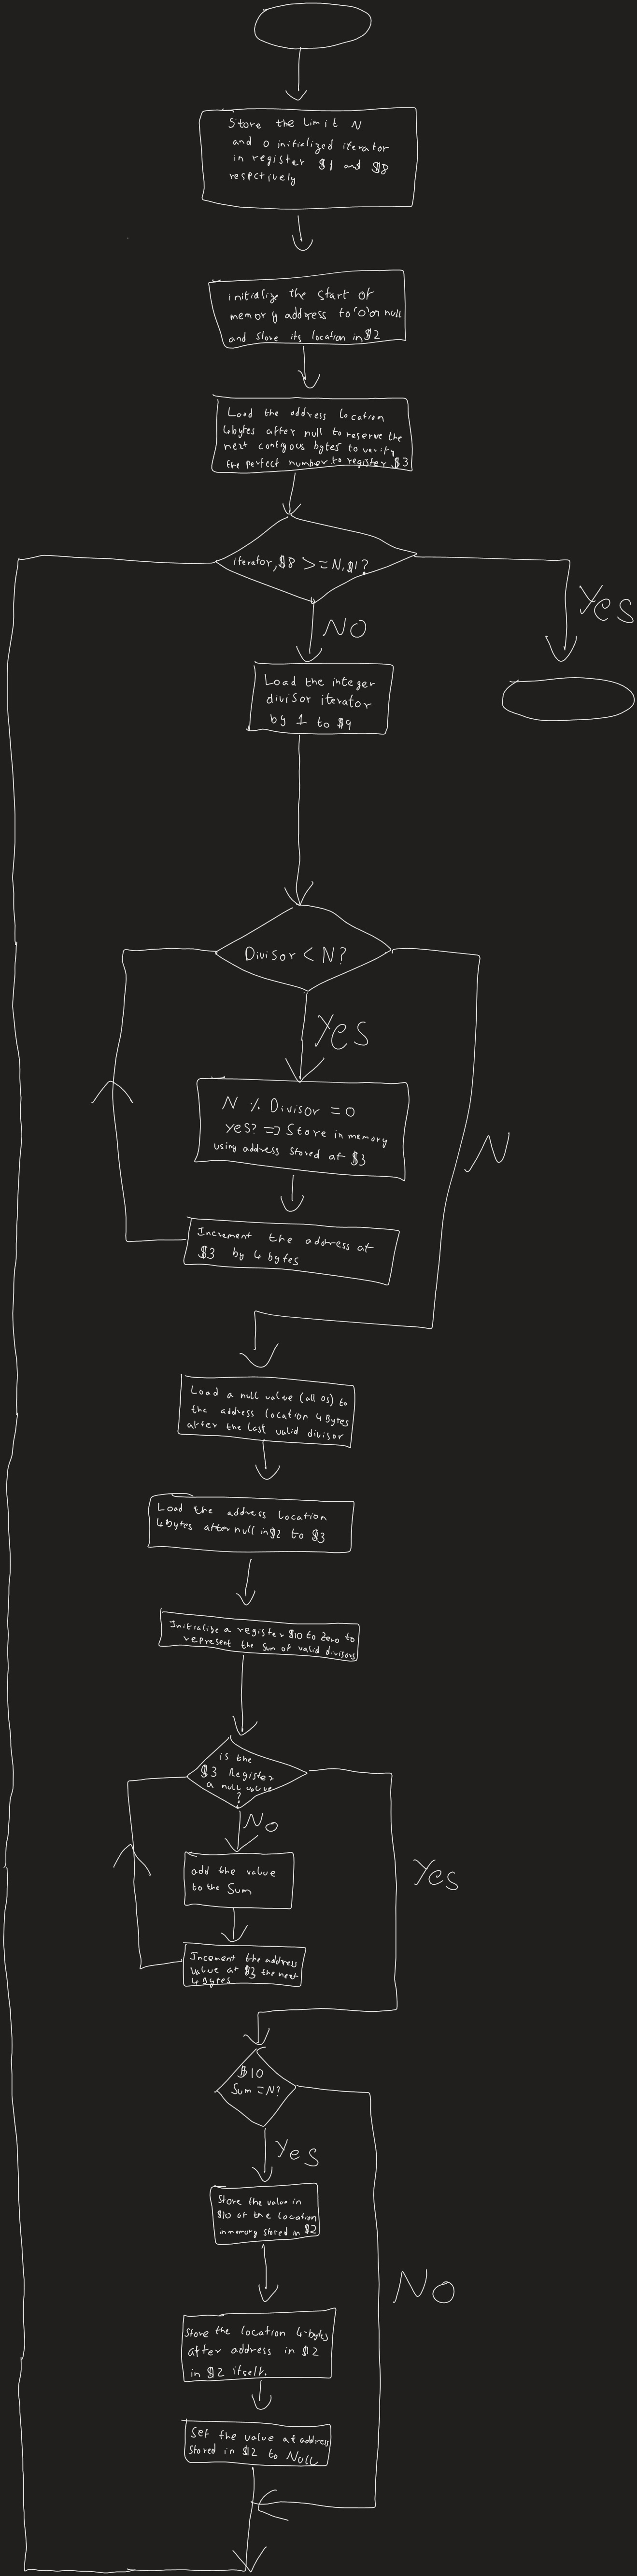 Store the Limit N
and 0 initialized iterator
in register $1 and $8
respctively
initialize the start of
memory address to '0' or null
and store its location in $2
Load the address location
4bytes after null to reserve the
next contigous bytes to verify
the perfect number to register $3
iterator, $8 >= N, $1?
Yes
NO
Load the integer
divisor iterator
by 1 to $9
Divisor < N?
Yes
N % Divisor = 0
Yes? => Store in memory
using address stored at $3
N
Increment the address at
$3 by 4 bytes
Load a null value (all 0s) to
the address location 4 Bytes
after the last valid divisor
Load the address location
4bytes after null in $2 to $3
Initialize a register $10 to Zero to
represent the sum of valid divisors
is the
$3 Register
a null value
?
No
Yes
add the value
to the Sum
Incement the address
value at $3 the next
4 Bytes
$10
Sum = N?
Yes
Store the value in
$10 at the location
in memory stored in $2
No
Store the location 4-bytes
after address in $2
in $2 itself.
Set the value at address
stored in $2 to NULL